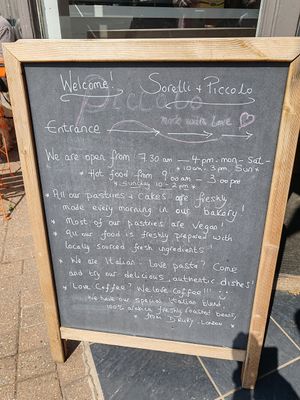 Welcome! Sorelli + Piccolo
Piccolo
made with Love
Entrance
We are open from 7.30am — 4 pm. mon - Sat -
* 10am - 3pm Sun *
* Hot food from 9.00am - 3:00pm
* Sunday 10 - 2pm *
* All our pastries + Cakes are freshly
made every morning in our bakery!
* Most of our pastries are vegan!
* All our food is freshly prepared with
locally sourced fresh ingredients
* We are Italian - Love pasta? Come
and try our delicious, authentic dishes!
* Love Coffee? We love Coffee!!!
We have our special Italian blend
100% arabica freshly roasted beans,
* from Drury - London *